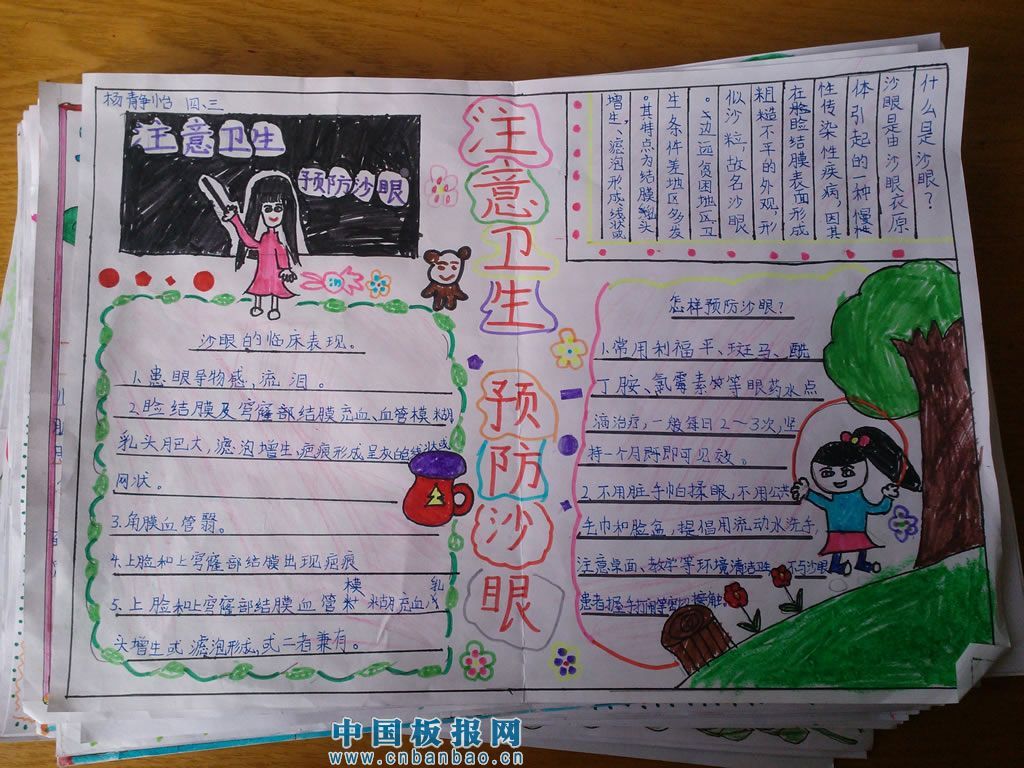 杨静怡 四、三
注意卫生
预防沙眼
注意卫生 预防沙眼
什么是沙眼？
沙眼是由沙眼衣原
体引起的一种慢
性传染性疾病，因其
在睑结膜表面形成
粗糙不平的外观，形
似沙粒，故名沙眼
。边远贫困地区、卫
生条件差地区多发
。其特点为结膜乳头
增生、滤泡形成，
沙眼的临床表现。
1.患眼异物感，流泪。
2.睑结膜及穹窿部结膜充血、血管模糊
乳头肥大，滤泡增生、疤痕形成呈灰白线状或
网状。
3.角膜血管翳。
4.上脸和上穹窿部结膜出现疤痕
5.上脸和上穹窿部结膜血管模糊充血，乳
头增生或滤泡形成，或二者兼有。
怎样预防沙眼？
1.常用利福平、斑马、酰
丁胺、氯霉素等眼药水点
滴治疗，一般每日2～3次，坚
持一个月即可见效。
2.不用脏手怕揉眼，不用公共
毛巾和脸盆，提倡用流动水洗手，
注意桌面、教学等环境清洁卫生 不与沙眼
患者握手 接触。
中国板报网
www.cnbanbao.cn